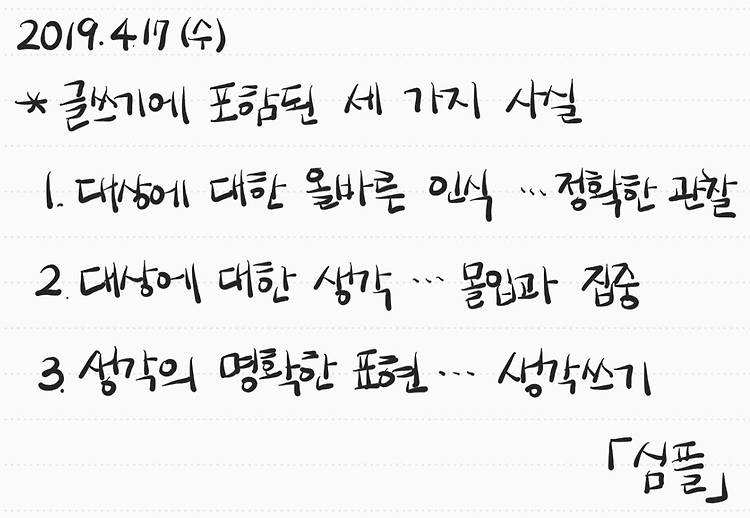 2019.4.17 (수)
* 글쓰기에 포함된 세 가지 사실
1. 대상에 대한 올바른 인식 … 정확한 관찰
2. 대상에 대한 생각 … 몰입과 집중
3. 생각의 명확한 표현 … 생각쓰기
「심플」